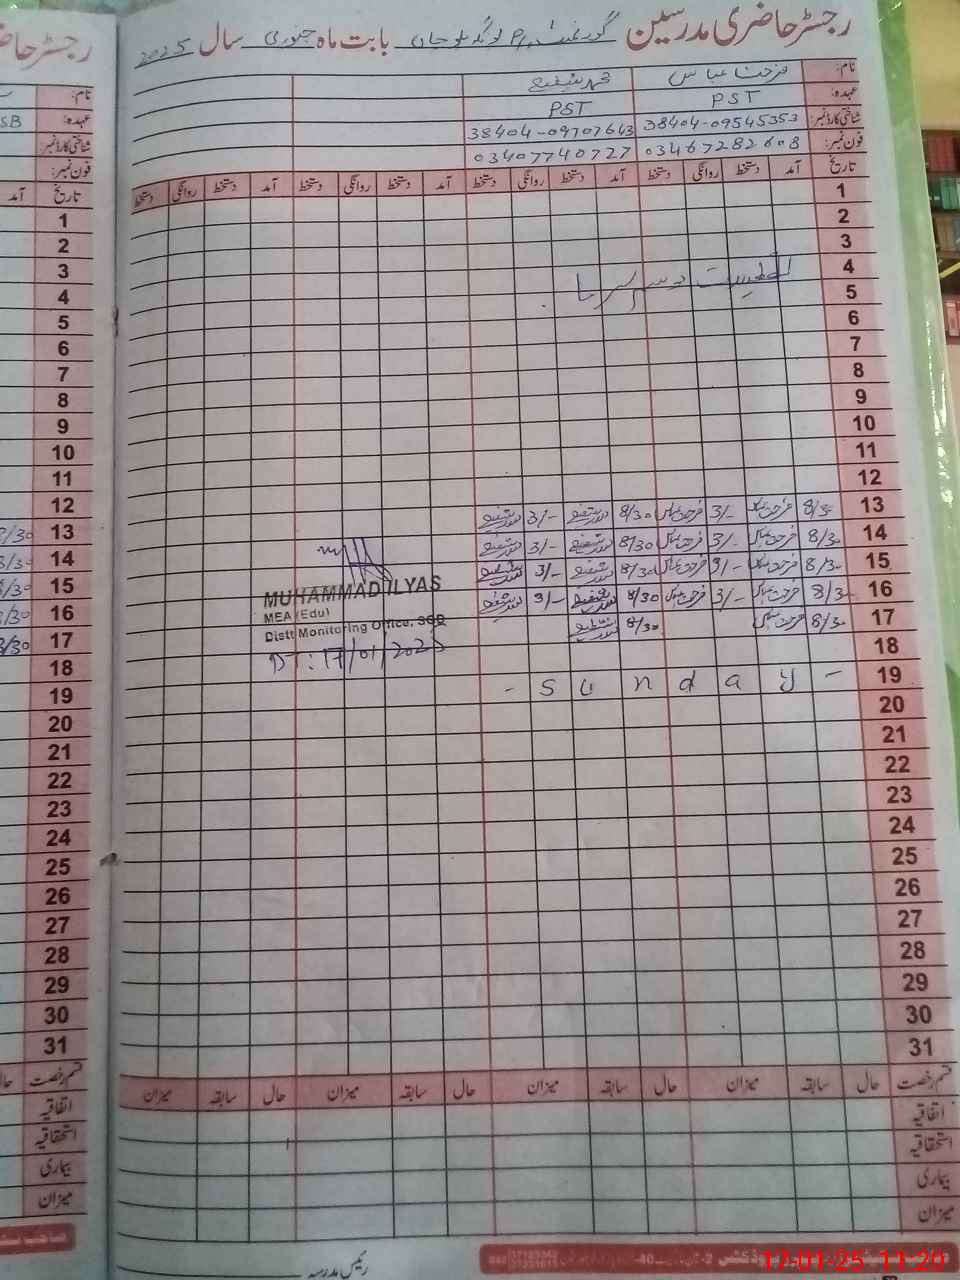 رجسٹر حاضری مدرسین گورنمنٹ بابت ماہ جنوری سال 2025
نام: فرحت عباس محمد شفیع
عہدہ: PST PST
شناختی کارڈ نمبر: 38404-09545353 38404-09707643
فون نمبر: 03467282608 03407740727
تاریخ آمد دستخط روانگی دستخط آمد دستخط روانگی دستخط آمد دستخط روانگی دستخط آمد دستخط روانگی دستخط
1
2
3
4
5
6
7
8
9
10
11
12
13 8/30 فرحت عباس 3/- فرحت عباس 8/30 محمد شفیع 3/- محمد شفیع
14 8/30 فرحت عباس 3/- فرحت عباس 8/30 محمد شفیع 3/- محمد شفیع
15 8/30 فرحت عباس 3/- فرحت عباس 8/30 محمد شفیع 3/- محمد شفیع
16 8/30 فرحت عباس 3/- فرحت عباس 8/30 محمد شفیع 3/- محمد شفیع
17 8/30 فرحت عباس 8/30 محمد شفیع
MUHAMMAD ILYAS
MEA (Edu)
Distt Monitoring Office, SGD
DT: 17/01/2025
18
19 - Sunday -
20
21
22
23
24
25
26
27
28
29
30
31
قسم رخصت حال سابقہ میزان حال سابقہ میزان حال سابقہ میزان حال سابقہ میزان
اتفاقیہ
استحقاقیہ
بیماری
میزان
رئیس مدرسہ
17-01-25 11:20
رجسٹر حاضری
نام:
عہدہ: SB
شناختی کارڈ نمبر:
فون نمبر:
تاریخ آمد
1
2
3
4
5
6
7
8
9
10
11
12
13 8/30
14 8/30
15 8/30
16 8/30
17 8/30
18
19
20
21
22
23
24
25
26
27
28
29
30
31
قسم رخصت حال
اتفاقیہ
استحقاقیہ
بیماری
میزان